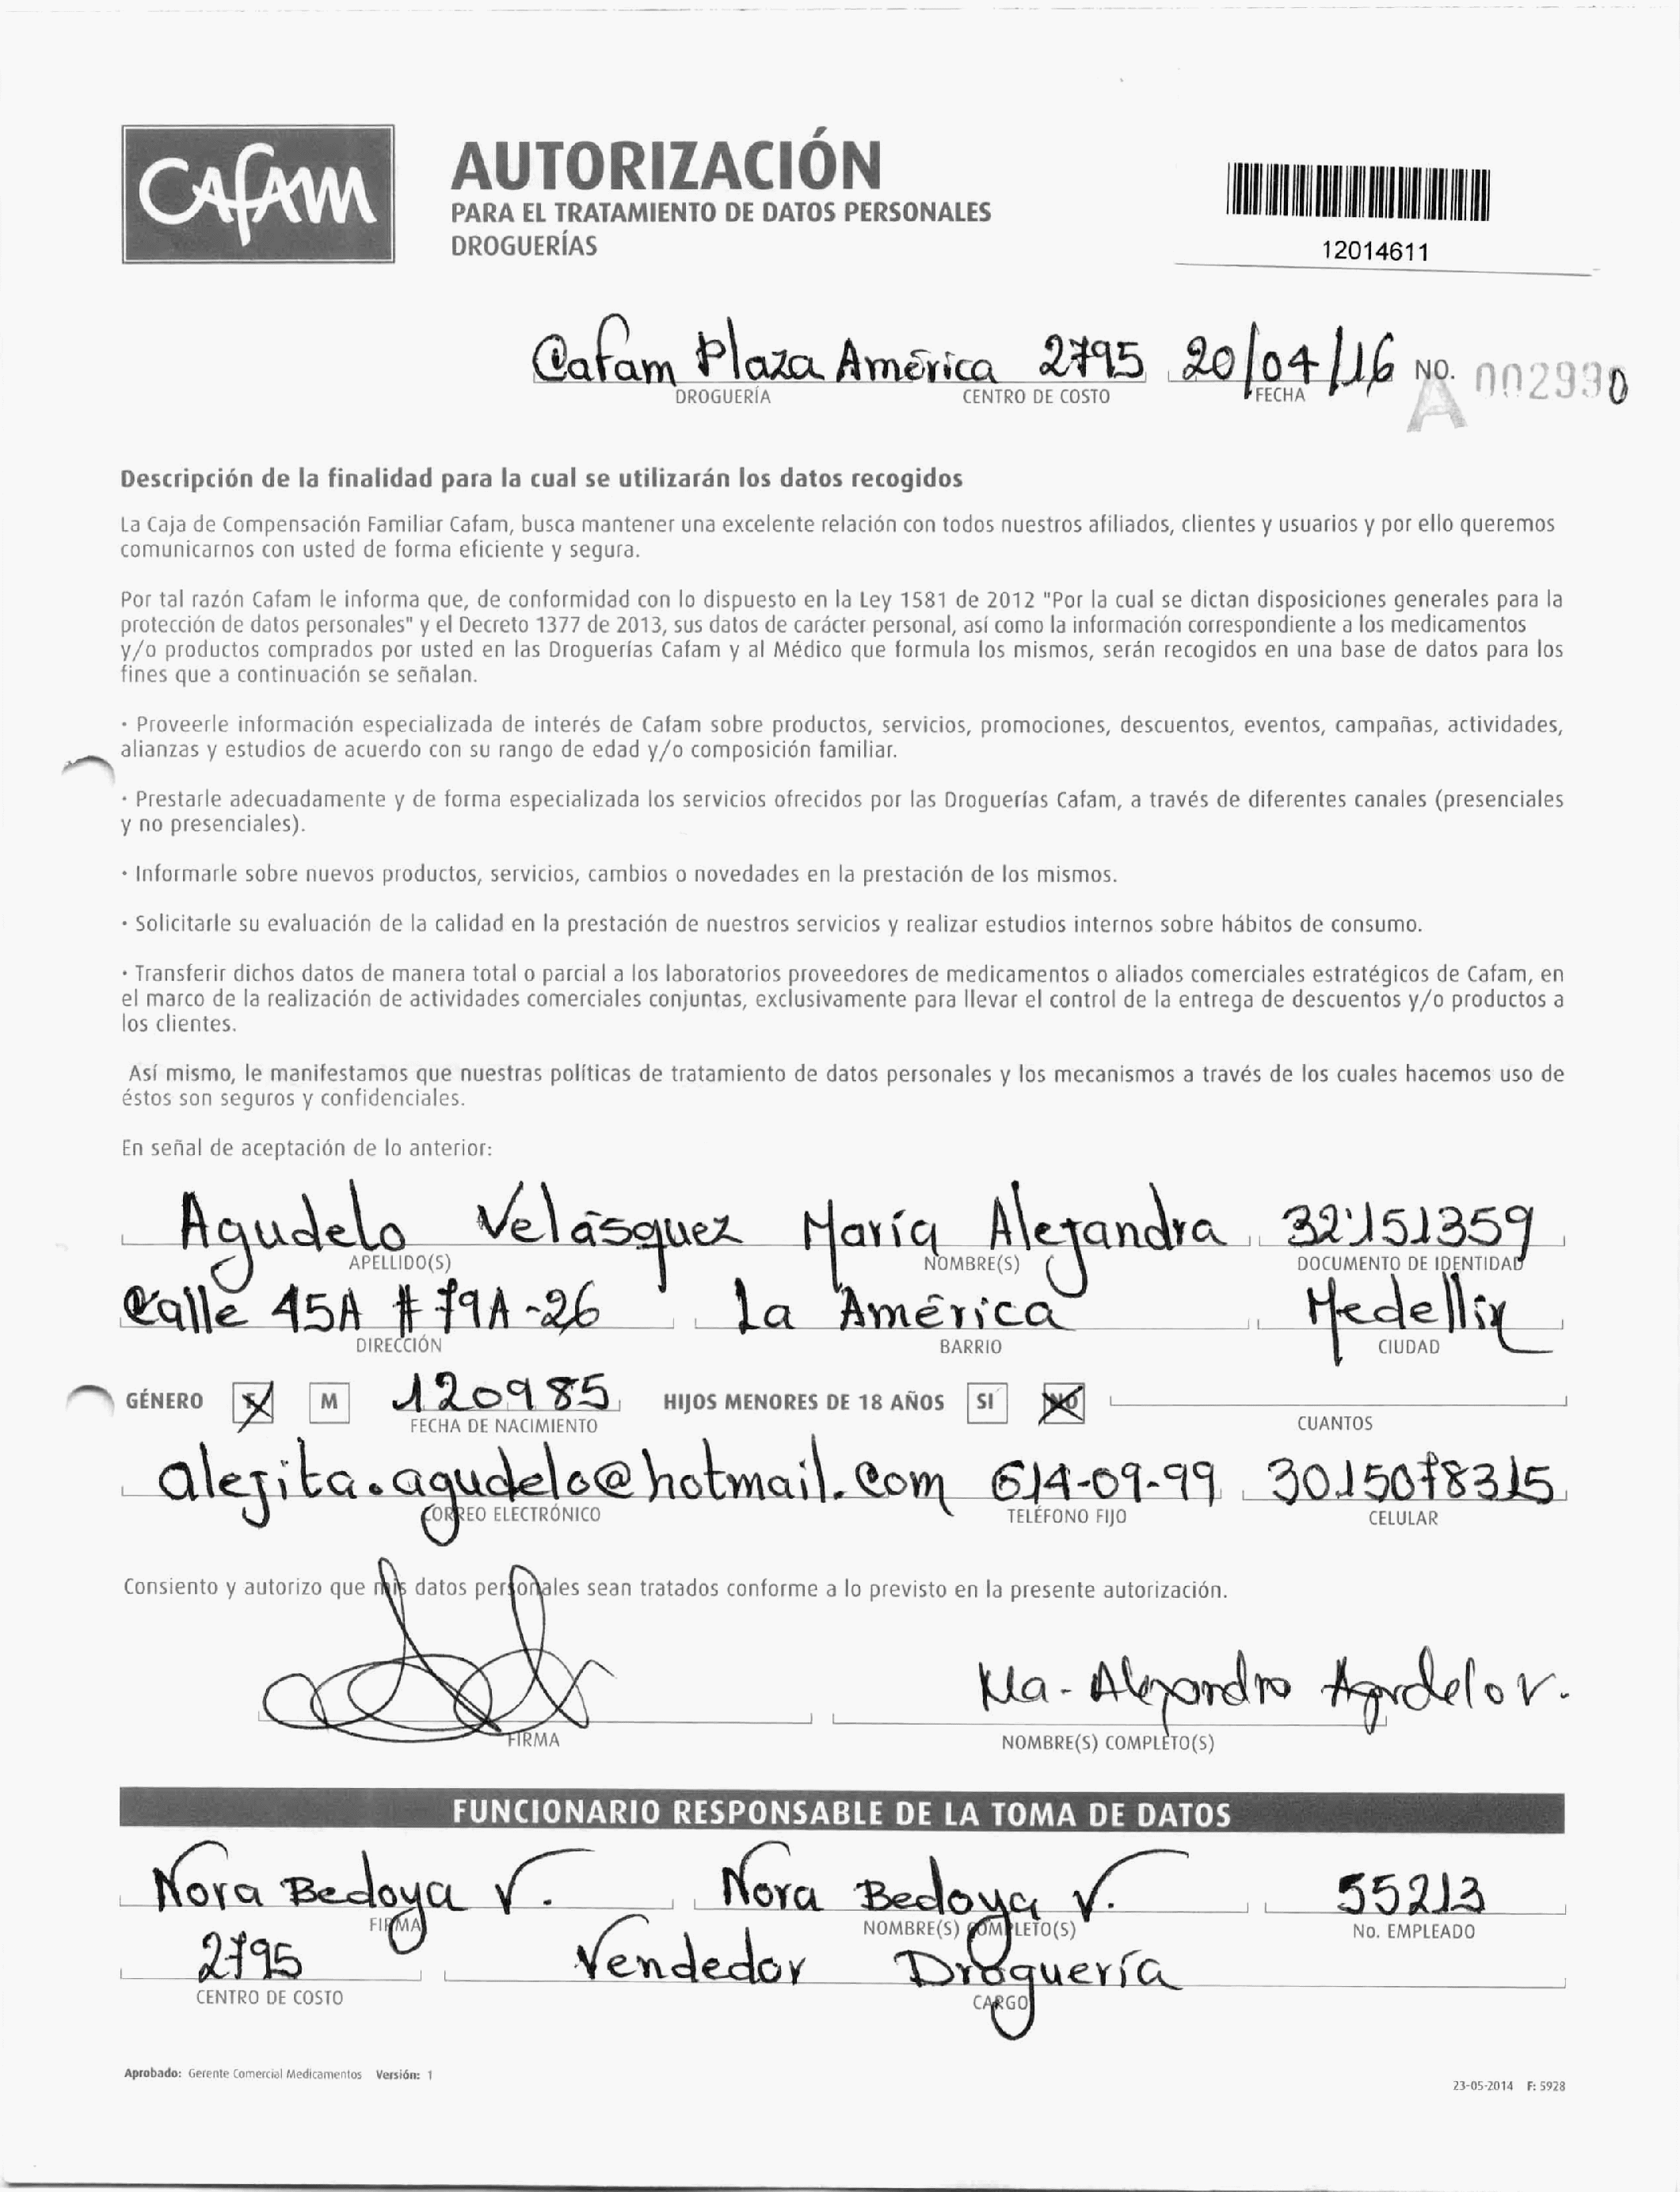 CAFAM
AUTORIZACIÓN
PARA EL TRATAMIENTO DE DATOS PERSONALES
DROGUERÍAS
12014611
Cafam Plaza América 2795 20/04/16 NO. A 002990
DROGUERÍA CENTRO DE COSTO FECHA
Descripción de la finalidad para la cual se utilizarán los datos recogidos
La Caja de Compensación Familiar Cafam, busca mantener una excelente relación con todos nuestros afiliados, clientes y usuarios y por ello queremos
comunicarnos con usted de forma eficiente y segura.
Por tal razón Cafam le informa que, de conformidad con lo dispuesto en la Ley 1581 de 2012 "Por la cual se dictan disposiciones generales para la
protección de datos personales" y el Decreto 1377 de 2013, sus datos de carácter personal, así como la información correspondiente a los medicamentos
y/o productos comprados por usted en las Droguerías Cafam y al Médico que formula los mismos, serán recogidos en una base de datos para los
fines que a continuación se señalan.
· Proveerle información especializada de interés de Cafam sobre productos, servicios, promociones, descuentos, eventos, campañas, actividades,
alianzas y estudios de acuerdo con su rango de edad y/o composición familiar.
· Prestarle adecuadamente y de forma especializada los servicios ofrecidos por las Droguerías Cafam, a través de diferentes canales (presenciales
y no presenciales).
· Informarle sobre nuevos productos, servicios, cambios o novedades en la prestación de los mismos.
· Solicitarle su evaluación de la calidad en la prestación de nuestros servicios y realizar estudios internos sobre hábitos de consumo.
· Transferir dichos datos de manera total o parcial a los laboratorios proveedores de medicamentos o aliados comerciales estratégicos de Cafam, en
el marco de la realización de actividades comerciales conjuntas, exclusivamente para llevar el control de la entrega de descuentos y/o productos a
los clientes.
Así mismo, le manifestamos que nuestras políticas de tratamiento de datos personales y los mecanismos a través de los cuales hacemos uso de
éstos son seguros y confidenciales.
En señal de aceptación de lo anterior:
Agudelo Velásquez María Alejandra 32'151359
APELLIDO(S) NOMBRE(S) DOCUMENTO DE IDENTIDAD
Calle 45A # 79A-26 La América Medellín
DIRECCIÓN BARRIO CIUDAD
GÉNERO F M 120985 HIJOS MENORES DE 18 AÑOS SI NO
FECHA DE NACIMIENTO CUANTOS
alejita.agudelo@hotmail.com 614-09-99 3015078315
CORREO ELECTRÓNICO TELÉFONO FIJO CELULAR
Consiento y autorizo que mis datos personales sean tratados conforme a lo previsto en la presente autorización.
Ma- Alejandra Agudelo V.
FIRMA NOMBRE(S) COMPLETO(S)
FUNCIONARIO RESPONSABLE DE LA TOMA DE DATOS
Nora Bedoya V. Nora Bedoya V. 55213
FIRMA NOMBRE(S) COMPLETO(S) No. EMPLEADO
2795 Vendedor Droguería
CENTRO DE COSTO CARGO
Aprobado: Gerente Comercial Medicamentos Versión: 1
23-05-2014 F: 5928